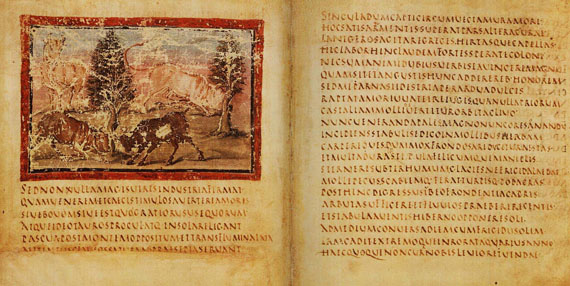 SEDNONVLLAMAGISVIRESINDVSTRIAFIRMAT
QVAMVENEREMETCAECISTIMVLOSAVERTEREAMORIS
SIVEBOVMSIVEESTQVOGRATIORVSVSEQVORVM
ATQVEIDEOTAVROSPROCVLATQINSOLARELIGANT
PASCVAPOSTMONTEMOPPOSITVMETTRANSFLVMINALATA
AVTINTVSCLAVSOSSATVRAADPRAESEPIASERVANT
SINGVLADVMCAPTICIRCVMVECTAMVRAMORE
HOCSATISARMENTISSVPERATPARSALTERACVRAE
LANIGEROSAGITAREGREGESHIRTASQVECAPELLAS
HICLABORHINCLAVDEMFORTESSPERATECOLONI
NECSVMANIMIDVBIVSVERBISEAVINCEREMAGNVM
QVAMSITETANGVSTISHVNCADDEREREBVSHONOREM
SEDMEPARNASIDESERTAPERARDVADVLCIS
RAPTATAMORIVVATIREIVGISQVANVLLAPRIORVM
CASTALIAMMOLLIDEVERTITVRORBITACLIVO
NVNCVENERANDAPALESMAGNONVNCORESONANDVM
INCIPIENSSTABVLISEDICOINMOLLIBVSHERBAM
CARPEREOVISDVMMOXFRONDOSAREDVCITVRAESTAS
ETMVLTADVRAMSTIPVLAFILICVMQVEMANIPLIS
STERNERESVBTERHVMVMGLACIESNEFRIGIDALAEDAT
MOLLEPECVSSCABIEMQVEFERATTVRPISQVEPODAGRAS
POSTHINCDIGRESSVSIVBEOFRONDENTIACAPRIS
ARBVTASVFFICEREETFLVVIOSPRAEBERERECENTIS
ETSTABVLAAVENTISHIBERNOOPPONERESOLI
ADMEDIVMCONVERSADIEMCVMFRIGIDVSOLIM
IAMCADITEXTREMOQVEINRORATAQVARIVSANNO
HAEQVOQVENONCVRANOBISLEVIORETVENDAE